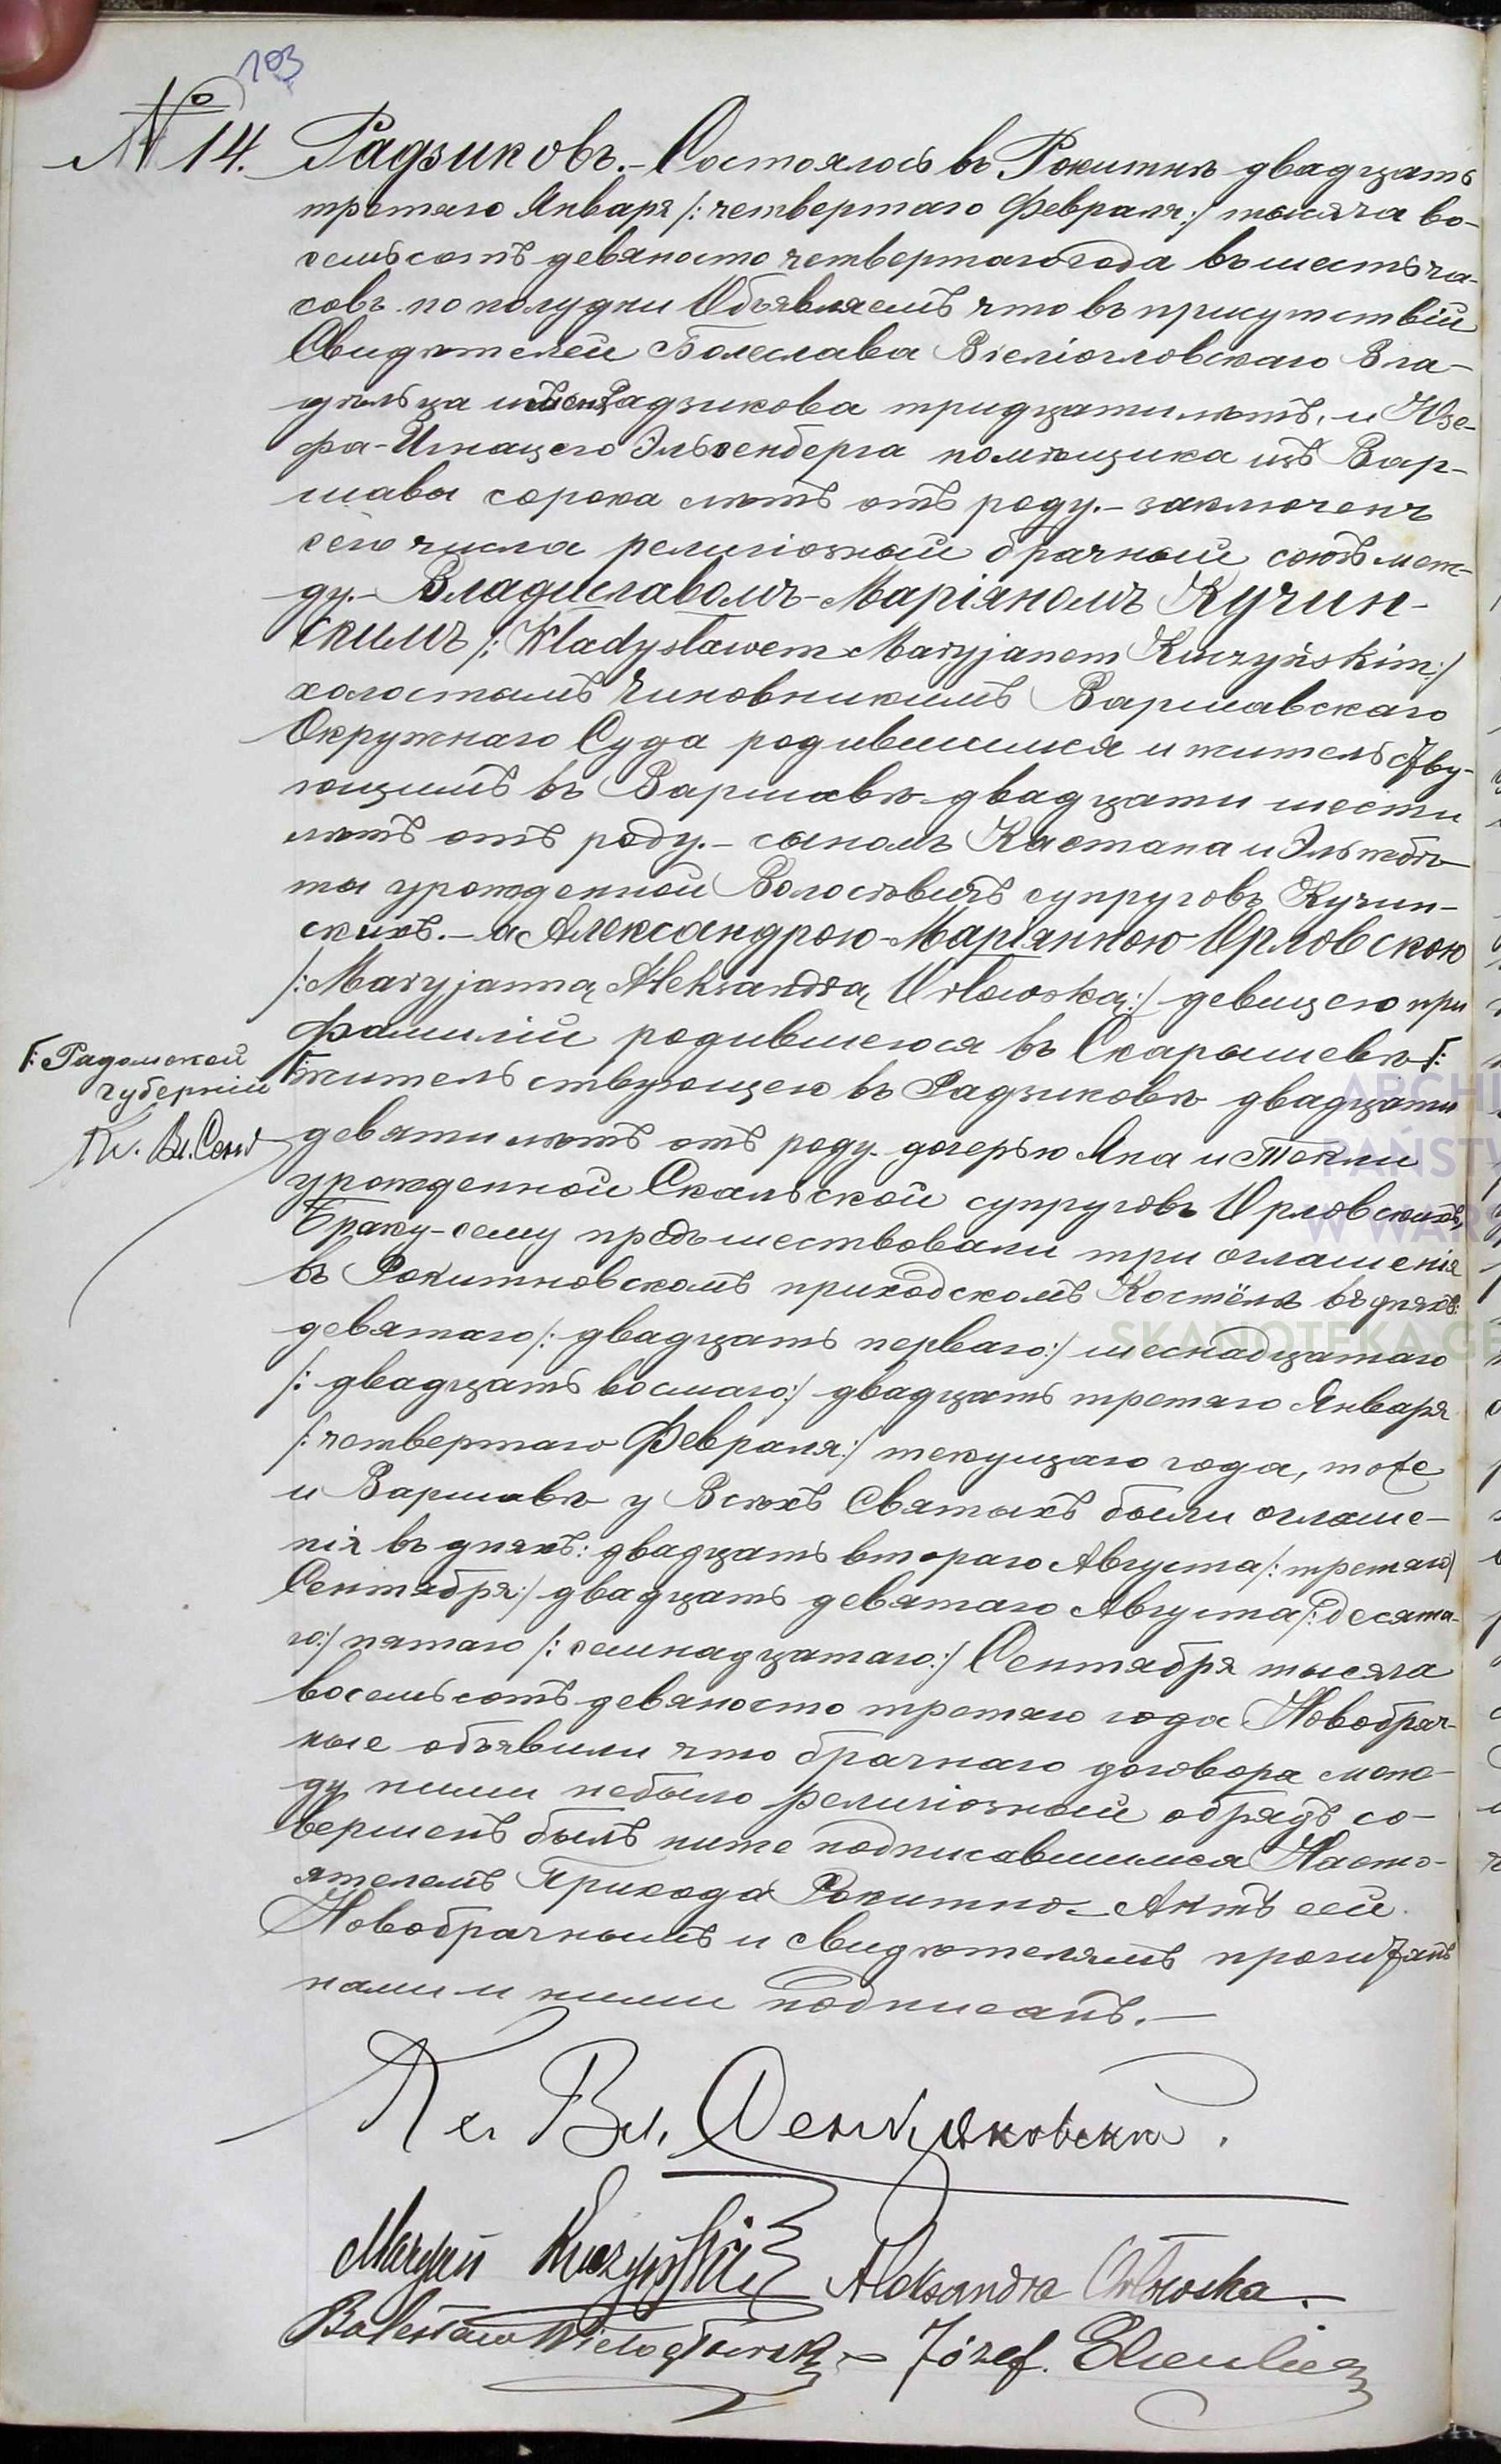 103
№ 14. Радзиковъ. - Состоялось въ Рокитнѣ двадцать
третяго Января /: четвертаго Февраля :/ тысяча во-
семьсотъ девяносто четвертаго года въ шесть ча-
совъ по полудни Объявляемъ что въ присутствіи
Свидѣтелей Болеслава Вѣлогловскаго Вла-
дѣльца Радзикова тридцати лѣтъ, и Юзе-
фа-Игнацего Эльзенберга помѣщика изъ Вар-
шавы сорока лѣтъ отъ роду. - заключенъ
сего числа религіозный брачный союзъ меж-
ду. - Владиславомъ-Маріяномъ Кучин-
скимъ /: Władysławem Maryjanem Kuczyńskim :/
холостымъ Чиновникимъ Варшавскаго
Окружнаго Суда родившимся и жительству-
ющимъ въ Варшавѣ двадцати шести
лѣтъ отъ роду. - сыномъ Каетана и Эльжбѣ-
ты урожденной Волотовичъ супруговъ Кучин-
скихъ. - а Александрою-Маріянною Орловскою
/: Maryjanną Aleksandrą Orłowską :/ девицею при
фамиліи родившеюся въ Скарышевѣ /:
/: Радомской
губерніи
Кс. Вл. Сенд
жительствующею въ Радзиковѣ двадцати
девяти лѣтъ отъ роду дочерью Яна и Текли
урожденной Скальской супруговъ Орловскихъ,
Браку-сему предшествовали три оглашенія
въ Рокитновскомъ приходскомъ Костёлѣ въ дняхъ:
девятаго /: двадцать перваго :/ шеснадцатаго
/: двадцать восмаго :/ двадцать третяго Января
/: четвертаго Февраля :/ текущаго года, тоже
и Варшавѣ у Всѣхъ Святыхъ были оглаше-
нія въ дняхъ: двадцать втораго Августа /: третяго
Сентября :/ двадцать девятаго Августа /: десята-
го :/ пятаго /: семнадцатаго :/ Сентября тысяча
восемьсотъ девяносто третяго года Новобрач-
ные объявили что брачнаго договора меж-
ду ними небыло религіозный обрядъ со-
вершенъ былъ ниже подписавшимся Насто-
ятелемъ Прихода Рокитно - Актъ сей
Новобрачнымъ и свидѣтелямъ прочитанъ
нами и ними подписанъ. -
Кс. Вл.
Maryan Kuczyński Aleksandra Orłowska.
Bolesław Wielogłowski - Józef. Elzenberg
ARCHI
PAŃSTW
W WARS
SKANOTEKA GE